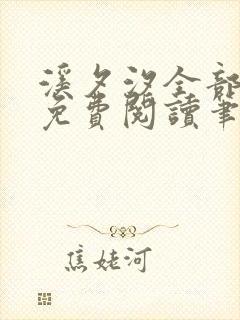 溪夕汐全部
免費閱讀筆
焦姥河